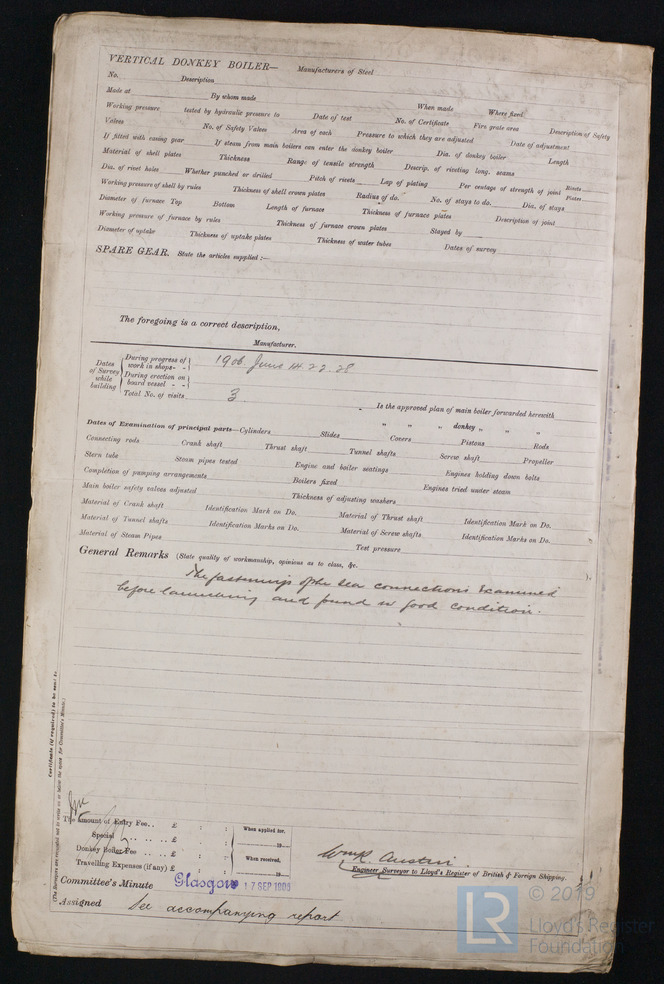 VERTICAL DONKEY BOILER— Manufacturers of Steel
No. Description
Made at By whom made When made Where fixed
Working pressure tested by hydraulic pressure to Date of test No. of Certificate Fire grate area Description of Safety
Valves No. of Safety Valves Area of each Pressure to which they are adjusted Date of adjustment
If fitted with easing gear If steam from main boilers can enter the donkey boiler Dia. of donkey boiler Length
Material of shell plates Thickness Range of tensile strength Descrip. of riveting long. seams
Dia. of rivet holes Whether punched or drilled Pitch of rivets Lap of plating Per centage of strength of joint Rivets Plates
Working pressure of shell by rules Thickness of shell crown plates Radius of do. No. of stays to do. Dia. of stays
Diameter of furnace Top Bottom Length of furnace Thickness of furnace plates Description of joint
Working pressure of furnace by rules Thickness of furnace crown plates Stayed by
Diameter of uptake Thickness of uptake plates Thickness of water tubes Dates of survey
SPARE GEAR. State the articles supplied :—
The foregoing is a correct description,
Manufacturer.
Dates of Survey while building
During progress of work in shops - - 1906. June 14. 22. 28
During erection on board vessel - -
Total No. of visits 3
Is the approved plan of main boiler forwarded herewith
" " " donkey " " "
Dates of Examination of principal parts—Cylinders Slides Covers Pistons Rods
Connecting rods Crank shaft Thrust shaft Tunnel shafts Screw shaft Propeller
Stern tube Steam pipes tested Engine and boiler seatings Engines holding down bolts
Completion of pumping arrangements Boilers fixed Engines tried under steam
Main boiler safety valves adjusted Thickness of adjusting washers
Material of Crank shaft Identification Mark on Do. Material of Thrust shaft Identification Mark on Do.
Material of Tunnel shafts Identification Marks on Do. Material of Screw shafts Identification Marks on Do.
Material of Steam Pipes Test pressure
General Remarks (State quality of workmanship, opinions as to class, &c.
The fastenings of the sea connections examined
before launching and found in good condition.
Certificate (if required) to be sent to
(The Surveyors are requested not to write on or below the space for Committee's Minute.)
The amount of Entry Fee. . £ : : When applied for,
Special . . . . £ : : 19
Donkey Boiler Fee . . . £ : : When received,
Travelling Expenses (if any) £ : : 19
Wm R. Austin
Engineer Surveyor to Lloyd's Register of British & Foreign Shipping.
Committee's Minute Glasgow 17 SEP 1906
Assigned See accompanying report
LR © 2019
Lloyd's Register
Foundation